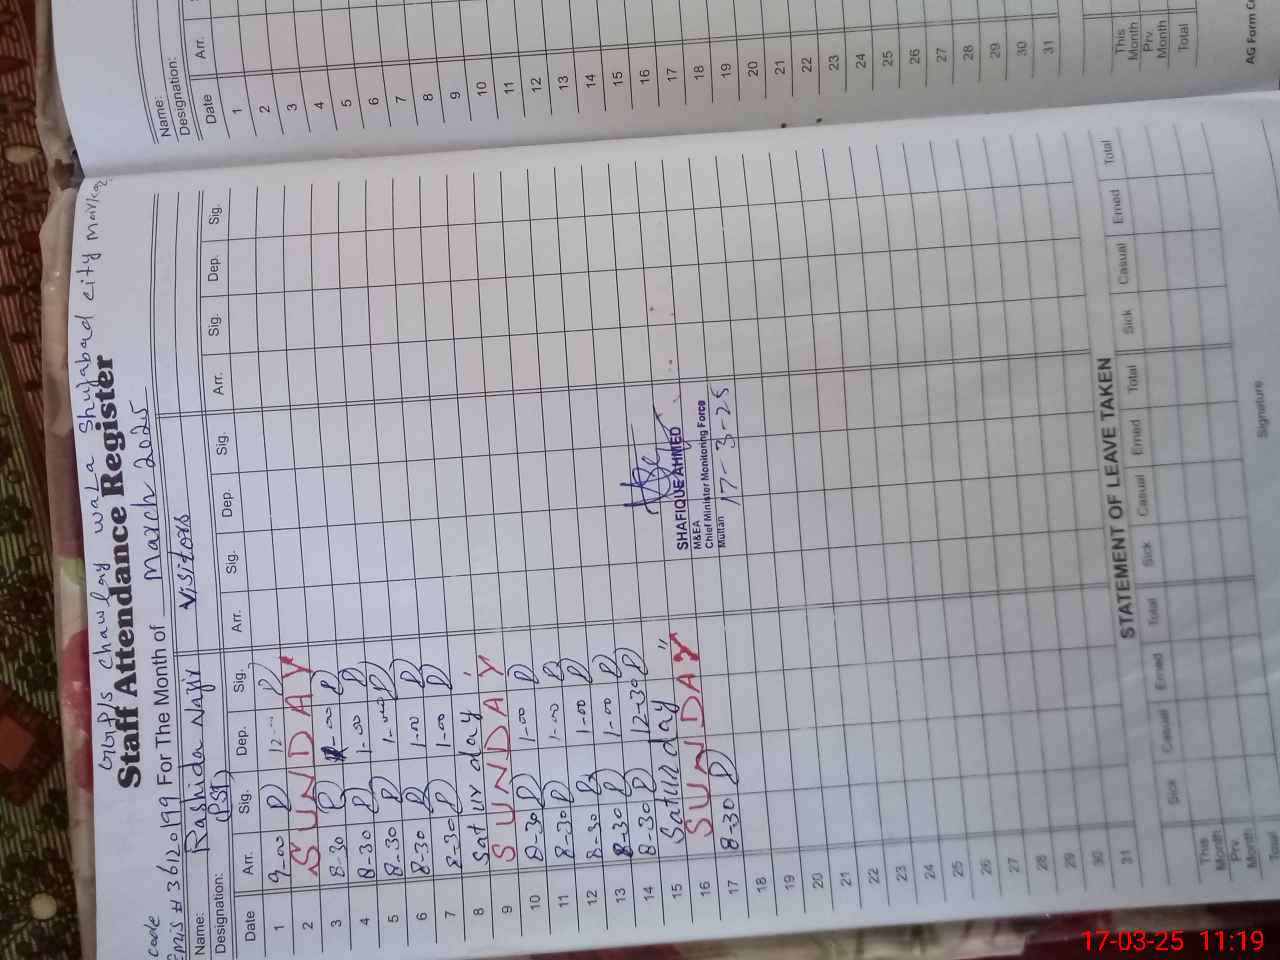 GGP/S chawlay wala Shujabad city markaz
Staff Attendance Register
code
Emis # 36120199 For The Month of March 2025
Name: Rashida Nazir Visitors
Designation: (PST)
Date Arr. Sig. Dep. Sig. Arr. Sig. Dep. Sig. Arr. Sig. Dep. Sig.
1 9-00 12-
2 SUNDAY
3 8-30 1-00
4 8-30 1-00
5 8-30 1-00
6 8-30 1-00
7 8-30 1-00
8 Saturday
9 SUNDAY
10 8-30 1-00
11 8-30 1-00
12 8-30 1-00
13 8-30 1-00
14 8-30 12-30
15 Saturday
16 SUNDAY
17 8-30
18
19
20
21
22
23
24
25
26
27
28
29
30
31
SHAFIQUE AHMED
M&EA
Chief Minister Monitoring Force
Multan 17-3-25
STATEMENT OF LEAVE TAKEN
Sick Casual Erned Total Sick Casual Erned Total Sick Casual Erned Total
This Month
Prv. Month
Total
Signature
Name:
Designation:
Date Arr.
1
2
3
4
5
6
7
8
9
10
11
12
13
14
15
16
17
18
19
20
21
22
23
24
25
26
27
28
29
30
31
This Month
Prv. Month
Total
AG Form
17-03-25 11:19